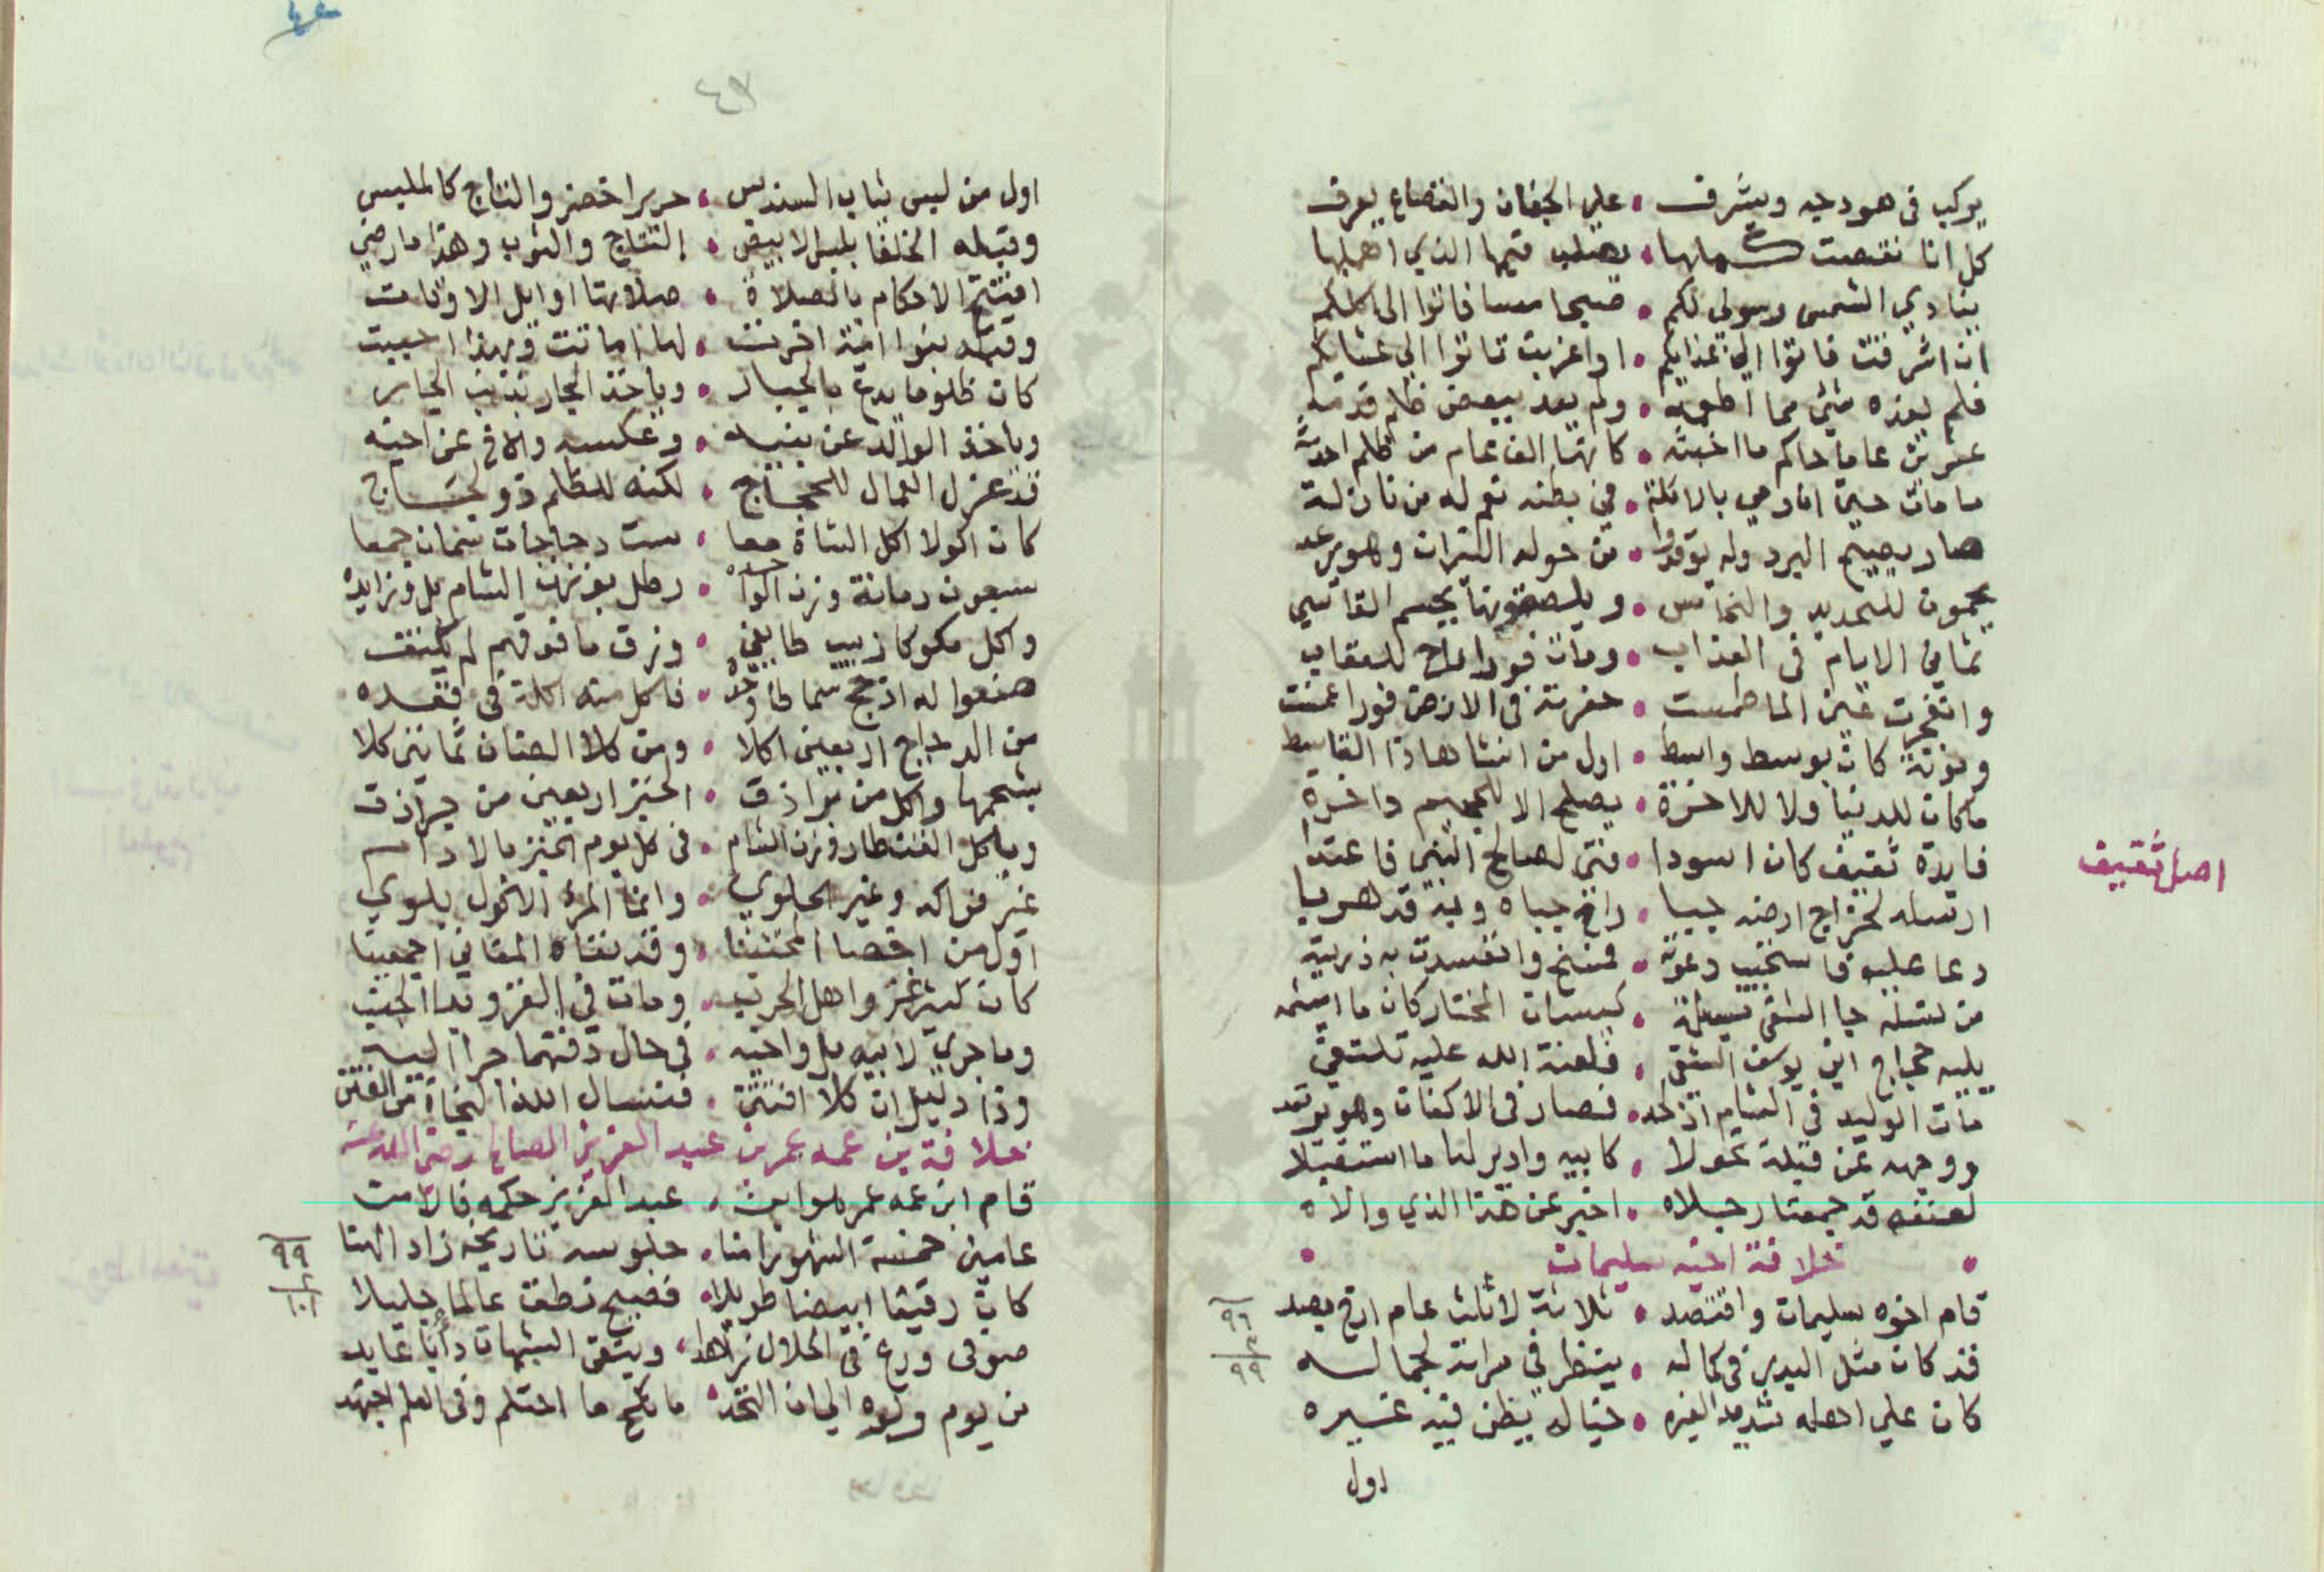 يركب في هودجه ويشرف • على الجفان والقصاع يعرف
كل انا نقصت • يصلب قيمها الذي اهملها
ينادي الشمس رسولي لكم • صبحا مسا فاتوا الى اكلكم
ان اشرقت فاتوا الى غدايكم • او اغربت فاتوا الى عشايكم
فلم يغده شئ مما اطعمه • ولم يعد ببعض ظلم قدمه
عشرين عاما حاكم ما اخبثه • كانها الف عام من ظلم احدثه
ما مات حتى اذ رمي بالاكلة • في بطنه نعم له من نازلة
صار يصيح البرد وله يوقدوا • من حوله النيران وهو يرعد
يحمون للحديد والنحاس • ويلصقونها بجسم القاسي
ثماني الايام في العذاب • ومات فورا راح للعقاب
وانفجرت عين الما طمست • حفرته في الارض فورا عفنت
وموته كان بوسط واسط • اول من انشا هاذا القاسط
ماكان للدنيا ولا للاخرة • يصلح الا للجحيم داخرة
فايدة ثقيف كان اسودا • فتى لصالح النبي فاعتدا
ارسله لخراج ارضه جبا • راح جباه وبه قد هربا
دعا عليه فاستجيب دعوته • فمسخ وانفسدت به ذريته
من نسله جا الشقي مسيلمة • كيسان المختار كان ما اشئمه
يليه حجاج ابن يوسف الشقي • فلعنة الله عليه تلتقي
مات الوليد في الشام اذ لحد • فصار في الاكفان وهو يرتعد
ووجهه عن قبلة تحولا • كابيه وادبر لها ما استقبلا
لعنقه قد جمعتا رجلاه • اخبر عن هذا الذي والاه
• خلافة اخيه سليمان •
قام اخوه سليمان واقتصد • ثلاثة لاثلث عام ارخ بصد
قد كان مثل البدر في كماله • ينظر في مراته لجماله
كان على اهله شديد الغيره • خياله يظن فيه غيره
اول
اصل ثقيف
٩٦
٣
٩٩
اول من لبس ثياب السندس • حريرا خضر والتاج كالملبس
وقبله الخلفا بلبس الابيض • التاج والثوب وهذا ما رضي
افتتح الاحكام بالصلاة • صلاتها اوايل الاوقات
وقبله بنوا امية اخرت • لها اماتت وبهذا احييت
كان ظلوما يدع بالجبار • وياخذ الجار بذنب الجار
وياخذ الوالد عن بنيه • وعكسه والاخ عن اخيه
قد عزل العمال للحجاج • لكنه للظلم ذو لجاج
كان اكولا اكل الشاة معا • ست دجاجات سمان جمعا
سبعون رمانة وزن الواحده • رطل بوزن الشام بل وزايده
واكل مكوكا زبيب طايفي • وزق ما فوقهم لم يكتف
صنعوا له اذ حج سماطا وحده • فاكل منه اكلة في قعده
من الدجاج اربعين اكلا • ومن كلا الضان ثمانين كلا
بشحمها واكل من جراذق • الخبز اربعين من جراذق
وياكل القنطار وزن الشام • في كل يوم الخبز بالادام
غير فواكه وغير الحلوي • وانما المرء الاكول يلوي
اول من اخصا المخنثينا • وقد نفاه المغاني اجمعينا
كان كثير غزو اهل الحرب • ومات في الغزو
وما جري لابيه بل واخيه • في حال دفنهما جرا اليه
وذا دليل ان كلا افتتن • فنسال الله النجاة من الفتن
خلافة بن عمه عمر بن عبد العزيز الصالح رضي الله عنه
قام ابن عمه عمر هو ابن • عبد العزيز حكمه فالامن
عامين خمسة اشهر امنا • جلوسه تاريخه زاد الهنا
كان رقيقا ابيضا طويلا • فصيح نطق عالما جليلا
صوفي ورع في الحلال زاهد • ويتقي الشبهات دأبا عابد
من يوم ولوه الى ان اتخذ • ما نكح ما احتلم وفي العلم اجتهد
٩٩
٢
١٠١